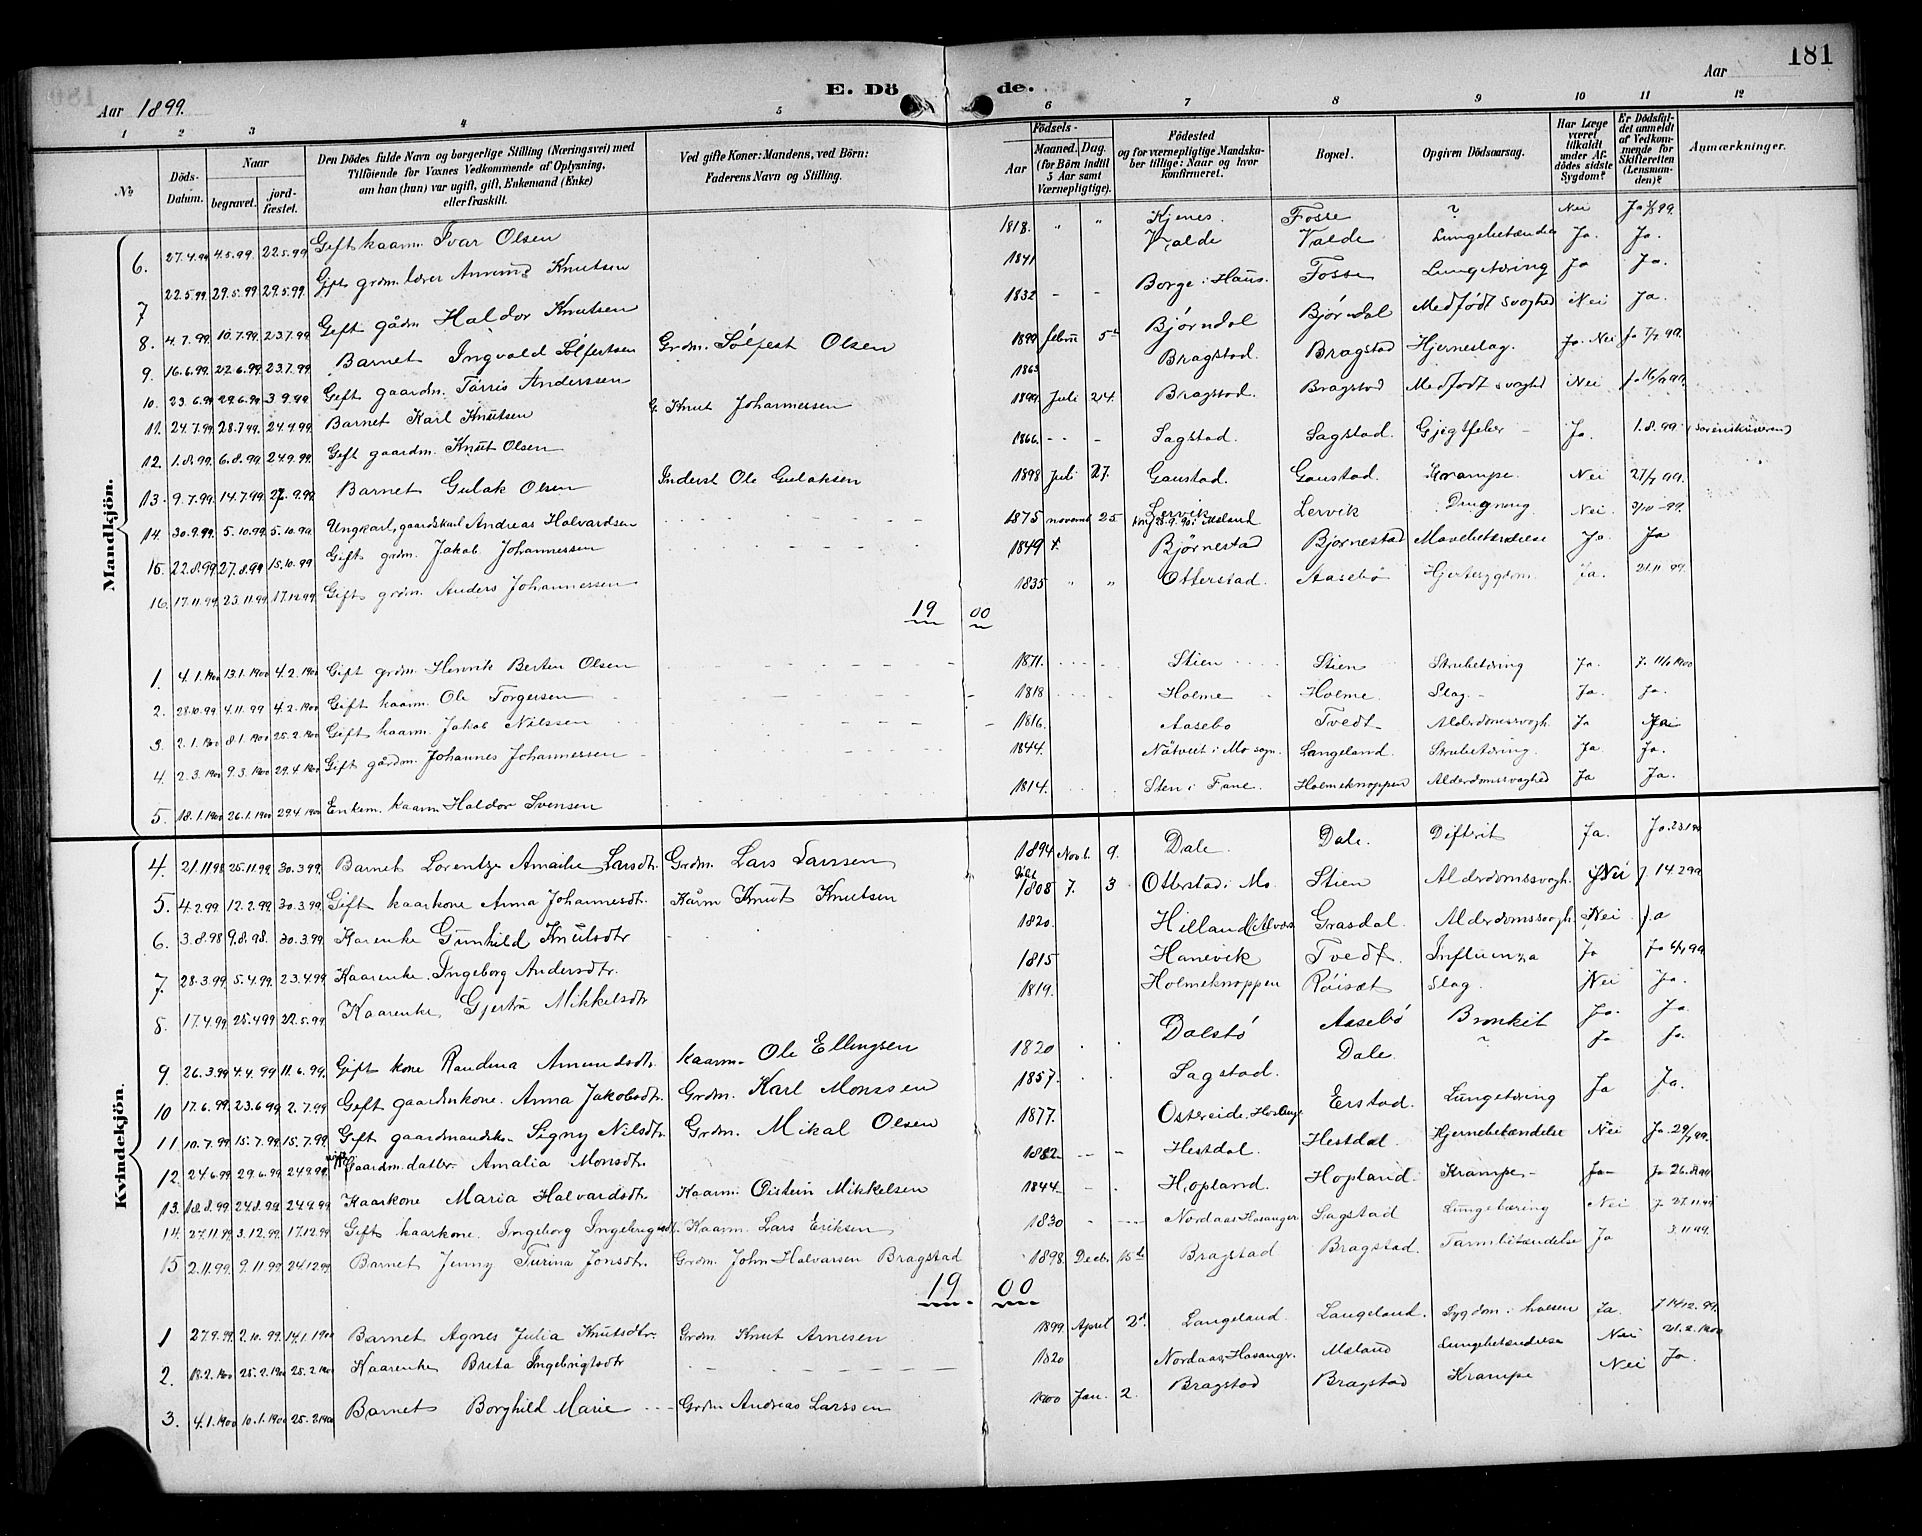 181
Aar 1899.
E. Dö de.
Aar
1 2 3 4 5 6 7 8 9 10 11 12
No
Döds-Datum.
Naar
begravet.
jord-fæstet.
Den Dödes fulde Navn og borgerlige Stilling (Næringsvei) med Tilföiende for Voxnes Vedkommende af Oplysning, om han (hun) var ugift, gift, Enkemand (Enke) eller fraskilt.
Ved gifte Koner: Mandens, ved Börn: Faderens Navn og Stilling.
Födsels-
Aar
Maaned. Dag.
(for Börn indtil 5 Aar samt Værnepligtige).
Födested og for værnepligtige Mandskaber tillige: Naar og hvor konfirmeret.
Bopæl.
Opgiven Dödsaarsag.
Har Læge været tilkaldt under Afdödes sidste Sygdom?
Er Dödsfaldet anmeldt af Vedkommende for Skifteretten (Lensmanden)?
Anmærkninger.
Mandkjön.
6. 27.4.99 4.5.99. 22.5.99 Gift kaarm. Ivar Olsen 1818. " " Kjenes. Fosse ? Nei Ja
22.5.99. 29.5.99 29.5.99. Gift grdm. lærer Knutsen 1841 Valde Valde Lungebetændelse Ja. Ja.
7 Gift gådm Haldor Knutsen 1832 - - Borge i Haus. Fosse Lungetæring Ja Ja.
8. 4.7.99. 10.7.99. 23.7.99 Barnet Ingvald Sølfestsen Grdm. Sølfest Olsen 1899 febru 5te Bjørndal Bjørndal Medfødt svaghed Nei Ja.
9. 16.6.99. 22.6.99. 23.7.99 Gift gaardm. Tørris Anderssen 1863 Bragstad. Bragstad Hjerneslag. Ja. Nei Ja 7/7 99.
10. 23.6.99 29.6.99 3.9.99. Barnet Karl Knutsen G. Knut Johannessen 1899 Juli 24. Bragstad. Bragstad Medfødt svaghed Nei
11. 24.7.99 28.7.99. 24.9.99 Gift gaardm. Knut Olsen 1866. - - - Sagstad. Sagstad. Gigtfeber - Ja. 1.8.99. (Sorenskriveren)
12. 1.8.99. 6.8.99 24.9.99.
13. 9.7.99 14.7.99 Barnet Gulak Olsen Inderst Ole Gulaksen 1898 Juli 27. Gaustad. Gaustad. Krampe. Nei 27/7 99.
14. 30.9.99. 5.10.99 5.10.99 Ungkarl, gaardskarl Andreas Halvardsen 1875 novemb 25. Lervik Lervik Drugning. Nei. 3/10-99.
konf. 28.9.90 i Meland
15. 22.8.99 27.8.99 15.10.99 Gift grdm. Jakob Johannessen 1849 Bjørnestad Bjørnestad Mavebetændelse Ja. Ja
16. 17.11.99. 23.11.99. 17.12.99. Gift grdm. Anders Johannessen 1835 " " Otterstad. Aasebø Hjertesygdom. Ja. 21.11.99.
19 00
1. 4.1.1900 13.1.1900 4.2.1900 Gift grdm. Henrik Berten Olsen 1871. Stien Stien Strubetæring Ja. J. 11/1 1900
2. 28.10.99 4.11.99 4.2.1900 Gift kaarm. Ole Torgersen 1818 Holme Holme. Slag. - Ja. Ja.
3. 2.1.1900 8.1.1900 25.2.1900 Gift kaarm. Jakob Nilssen 1816. Aasebø Tvedt Alderdomssvagh. Ja Ja
4. 2.3.1900 9.3.1900 29.4.1900 Gift gårdm. Johannes Johannessen 1844. Nätveit i Mo sogn. Langeland. Strubetæring. Ja. Ja.
5. 18.1.1900 26.1.1900 29.4.1900 Enkem. kaarm Haldor Svensen 1814. Sten i Fane. Holmeknoppen Alderdomssvaghed Ja Ja.
Kvindekjön.
4. 21.11.98 25.11.99. 30.3.99. Barnet Lorentze Amalie Larsdtr. Grdm. Lars Larssen 1894 Novb. 9. Dale. Dale. Diftrit Ja.
5. 4.2.99. 12.2.99. 30.3.99. Gift kaarkone Anna Johannesdtr. Kårm Knut Knutsen 1808 7. 3 Otterstad i Mo. Stien Alderdomssvagh. Nei J. 14.2.99
6. 3.8.98 9.8.98. 30.3.99. Karenke Gunhild Knutsdtr 1820. Hilland Grasdal Alderdomssvagh. Nei. Ja
7. 28.3.99. 5.4.99. 23.4.99 Kaarenke. Ingeborg Andersdtr. 1815 Hanevik Tvedt. Influenza Ja
8. 17.4.99 25.4.99 22.5.99 Kaarenke. Gjertru Mikkelsdtr 1819. Holmeknoppen Röisæt Slag. Nei Ja.
9. 26.3.99 4.4.99 11.6.99. Gift kone Randina Amundsdtr. kaarm. Ole Ellingsen 1820 Dalstø Aasebø Bronkit Ja. Ja
10 17.6.99. 23.6.99 2.7.99 Gift gaardmkone. Anna Jakobsdtr. Grdm. Karl Monssen 1857. Sagstad. Dale. ? Ja Ja.
11 10.7.99 15.7.99. 15.7.99. Gift gaardmandsk. Signy Nilsdtr Grdm. Mikal Olsen 1877. Ostereide, Hosanger Eerstad. Lungetæring Ja Ja.
12. 24.6.99 29.6.99 24.9.99. ugift Gaardm. datter. Amalia Monsdtr. 1882 - - Hestdal. Hestdal Hjernebetændelse Nei Ja. 29/7 99.
13. 18.8.99 24.8.99 24.9.99 Kaarkone Maria Halvardsdtr. Kaarm. Øistein Mikkelsen 1844 - . Hopland. Hopland. Krampe - Ja - Ja 26.8.99
14. 27.11.99 3.12.99. 17.12.99 Gift kaarkone. Ingeborg Ingebrigtsdt. Kaarm. Lars Eriksen 1830 - Nordaas, Hosanger Sagstad Lungetæring Nei J. 27.11.99
15 2.11.99. 9.11.99 24.12.99 Barnet Jenny Turina Jonsdtr. Grdm. John Halvarsen Bragstad 1898. Decbr 15de Bragstad Bragstad. Tarmbetændelse Ja 3.11.99.
19 00
1 27.9.99. 2.10.99. 14.1.1900 Barnet Agnes Julia Knutsdtr. Grdm Knut Arnesen 1899. April 2d. Langeland. Langeland. Sygdom i halsen Ja. J 14.12.99.
2. 18.2.1900 25.2.1900 25.2.1900 Kaarenke Brita Ingebrigtsdtr 1820 Nordaas, Hosangr. Mæland Lungebetændelse Nei 21.2.1900
3. 4.1.1900 10.1.1900 25.2.1900 Barnet Borghild Marie Grdm Andreas Larssen 1900 Jan. 2. Bragstad Bragstad Krampe Nei Ja.